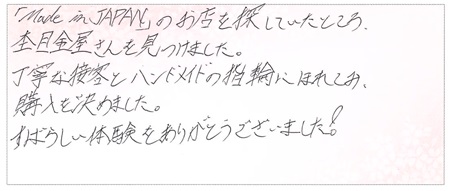 「Made in JAPAN」のお店を探していたところ、
杢目金屋さんを見つけました。
丁寧な接客とハンドメイドの指輪にほれてお、
購入を決めました。
すばらしい体験をありがとうございました!